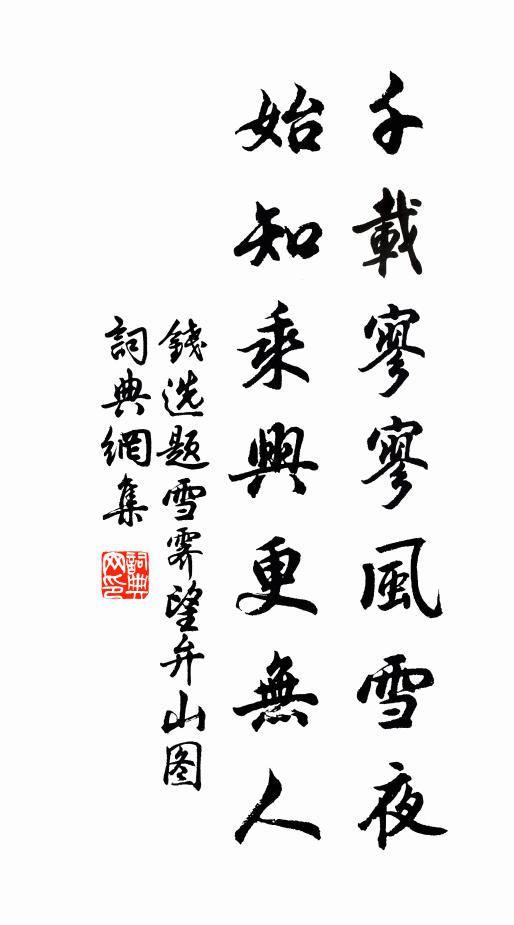 千載寥寥風雪夜
始知乘興更無人
錢选題雪霁望弁山图
詞典網集
詞典网印